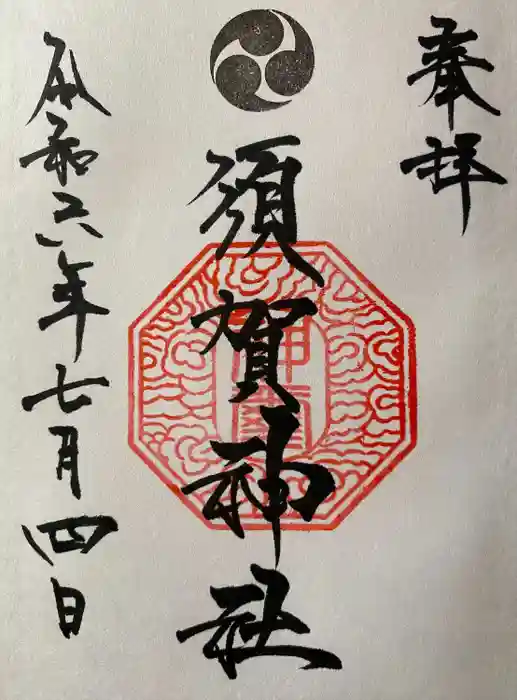 奉拝
須賀神社
令和六年七月四日